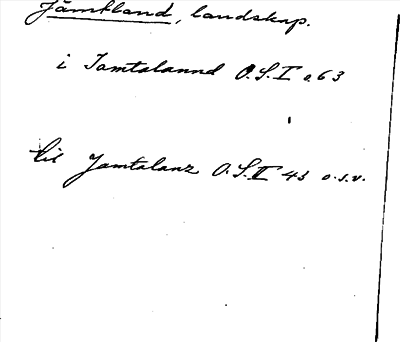 Jämtland, landskap.
i Jamtalannd O.S.I s. 63
til Jamtalanz O.S.II 43 o.s.v.